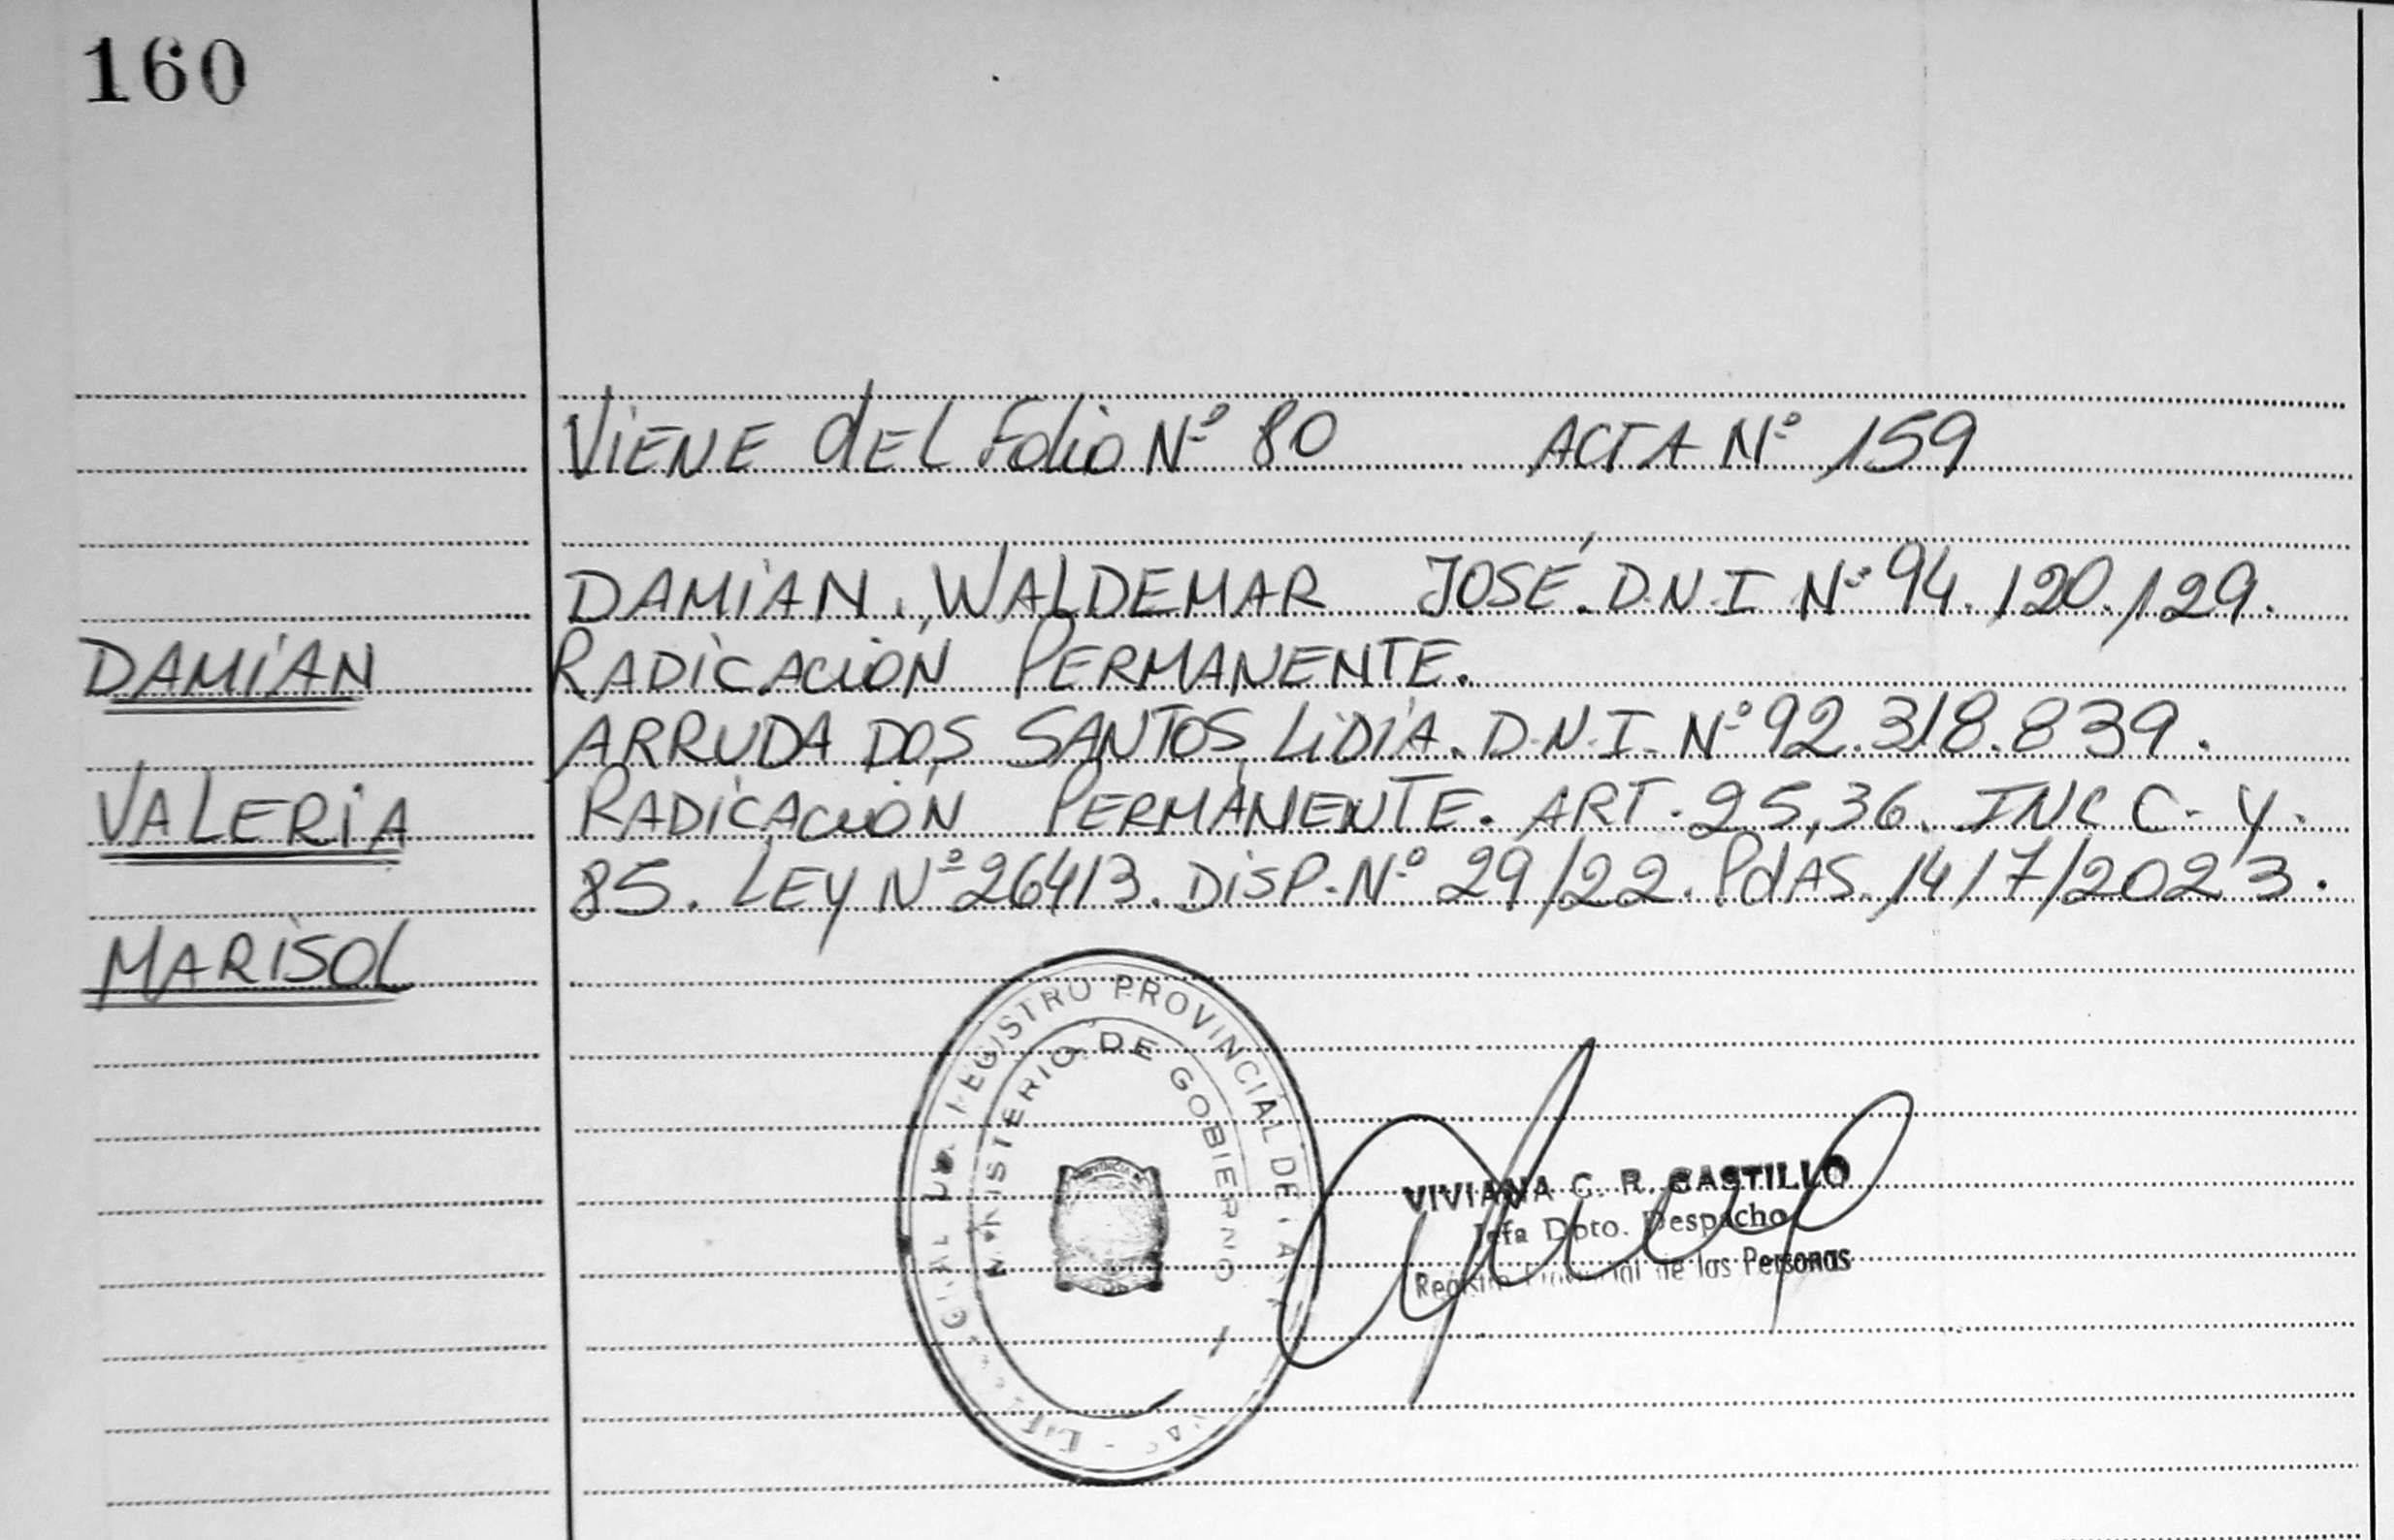 160
VIENE dEL FOLIO Nº 80 ACTA Nº 159
DAMIAN. WALDEMAR JOSÉ. D.N.I Nº 94.120.129.
DAMIAN
RADICACIÓN PERMANENTE.
ARRUDA DOS SANTOS LIDIA. D.N.I. Nº 92.318.839.
VALERIA
RADICACIÓN PERMANENTE. ART. 25,36. INC C- Y.
85. LEY Nº 26413. DISP. Nº 29/22. PdAS. 14/7/2023.
MARISOL
REGISTRO PROVINCIAL DE
MINISTERIO DE GOBIERNO
VIVIANA C. R. CASTILLO
Jefa Dpto. Despacho
Registro Provincial de las Personas